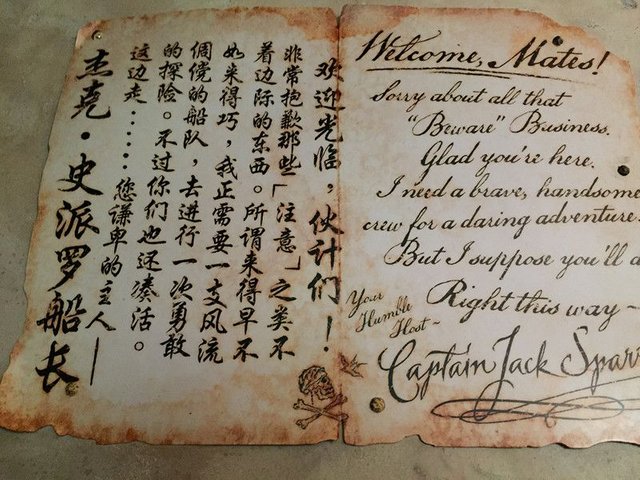 欢迎光临，伙计们！
非常抱歉那些「注意」之类不
着边际的东西。所谓来得早不
如来得巧，我正需要一支风流
倜傥的船队，去进行一次勇敢
的探险。不过你们也还凑活。
这边走……
您谦卑的主人——
杰克·史派罗船长
Welcome, Mates!
Sorry about all that
"Beware" Business.
Glad you're here.
I need a brave, handsome
crew for a daring adventure.
But I suppose you'll
Right this way~
Your
Humble
Host~
Captain Jack